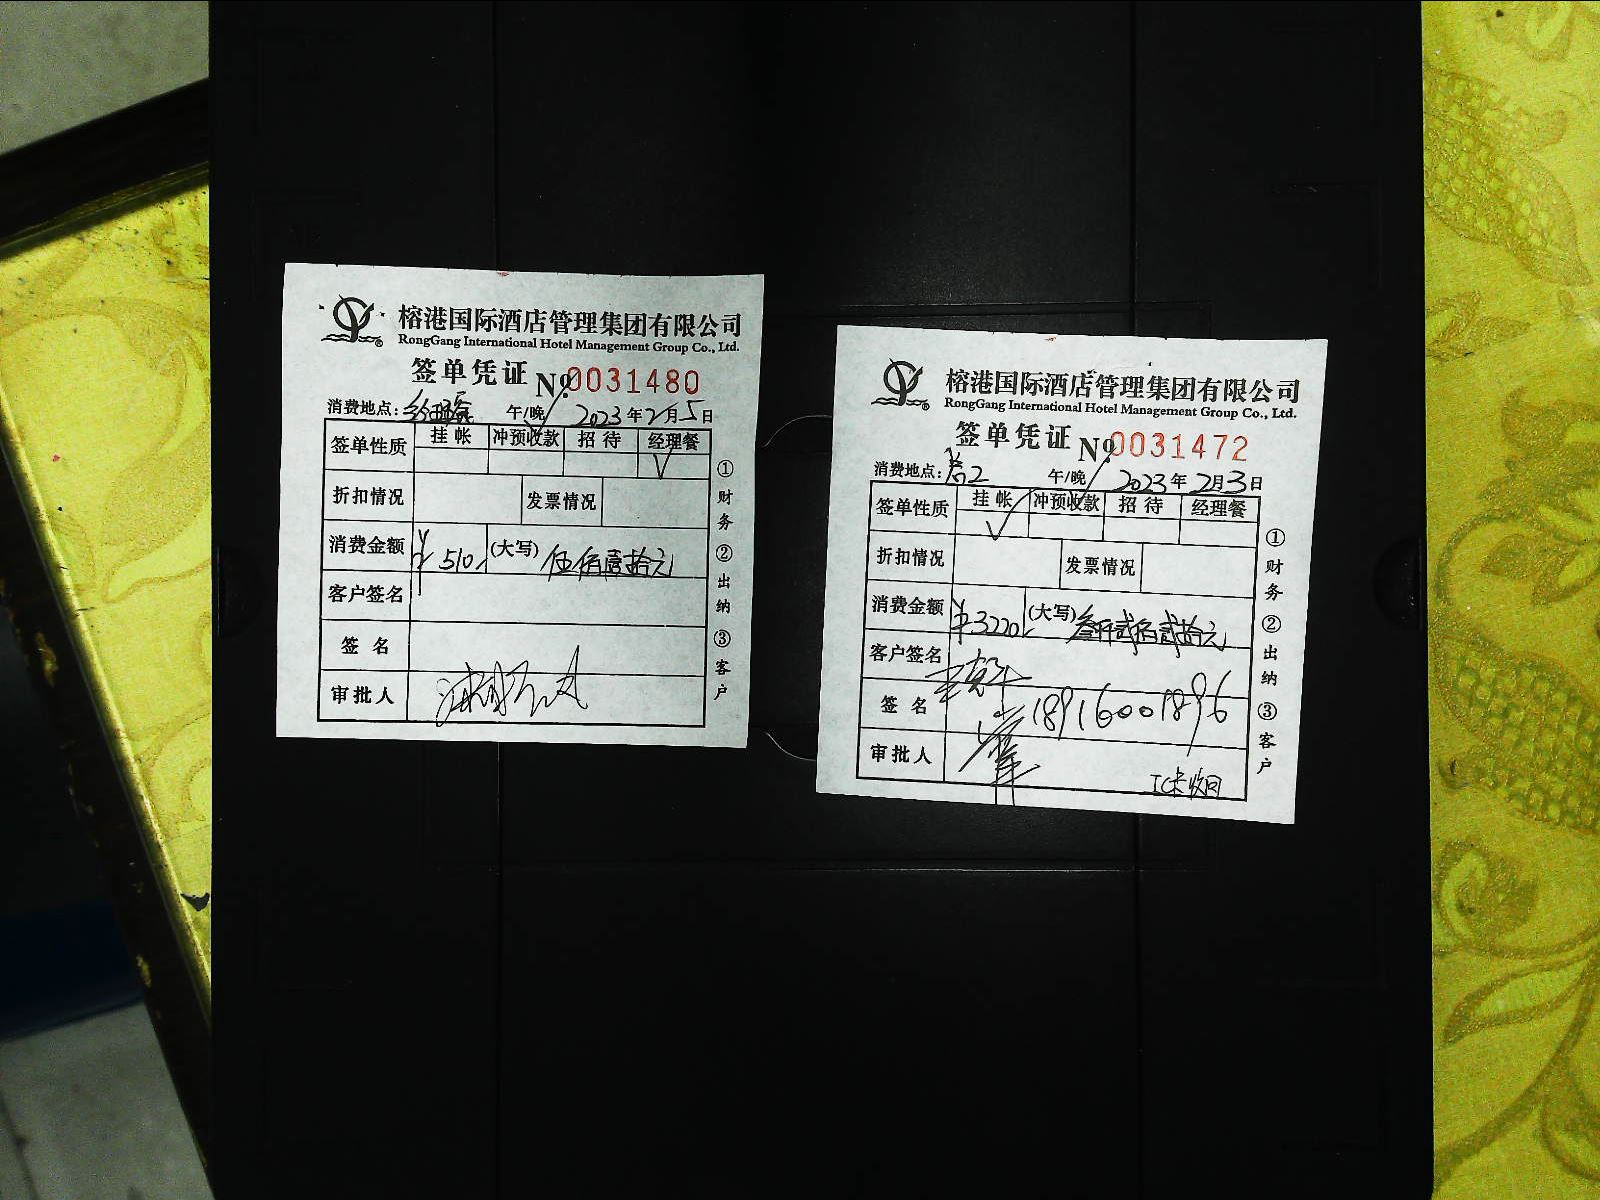 榕港国际酒店管理集团有限公司
RongGang International Hotel Management Group Co., Ltd.
签单凭证 No.0031480
消费地点: 午/晚 2023年2月5日
签单性质 挂帐 冲预收款 招待 经理餐
√
折扣情况 发票情况
消费金额 ¥510 (大写) 伍佰壹拾元
客户签名
签名
审批人
①财务 ②出纳 ③客户
榕港国际酒店管理集团有限公司
RongGang International Hotel Management Group Co., Ltd.
签单凭证 No.0031472
消费地点: 午/晚 2023年2月3日
签单性质 挂帐 冲预收款 招待 经理餐
√
折扣情况 发票情况
消费金额 ¥3220 (大写) 叁仟贰佰贰拾元
客户签名
签名 18916001896
审批人 IC卡收回
①财务 ②出纳 ③客户